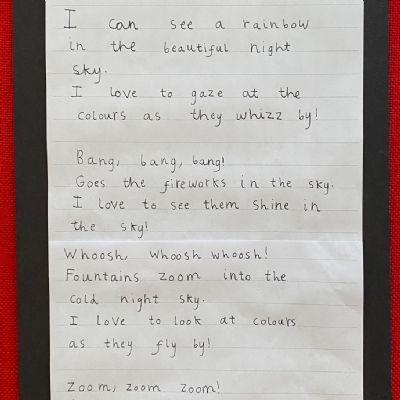 I can see a rainbow
in the beautiful night
sky.
I love to gaze at the
colours as they whizz by!
Bang, bang, bang!
Goes the fireworks in the sky.
I love to see them shine in
the sky!
Whoosh, whoosh whoosh!
Fountains zoom into the
cold night sky.
I love to look at colours
as they fly by!
Zoom, zoom zoom!